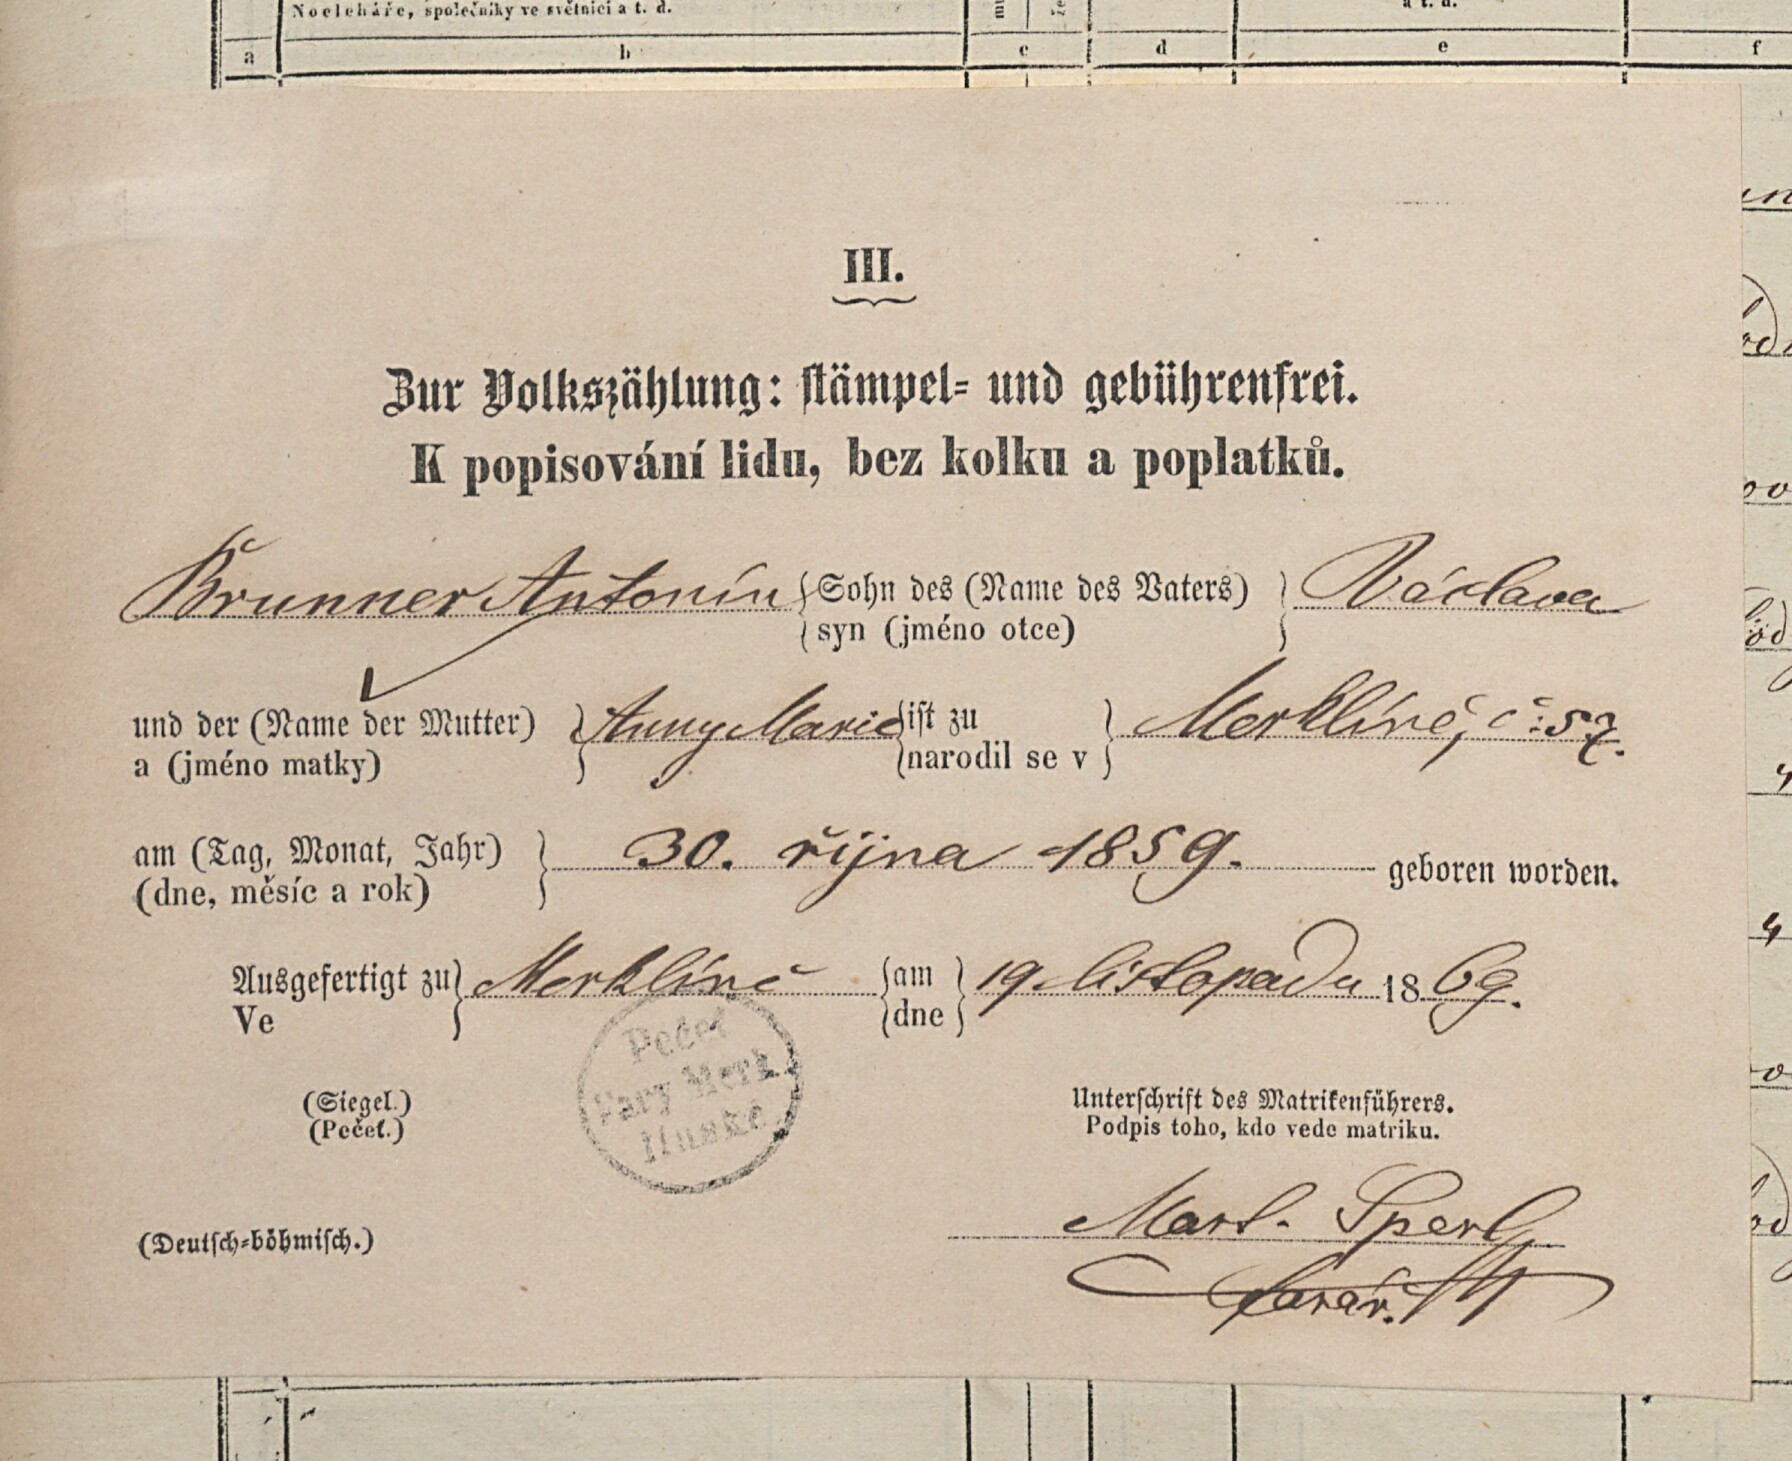 Noclehářc, společníky ve světnici a t. d.
a t. d.
a b c d e f
III.
Zur Volkszählung: stämpel= und gebührenfrei.
K popisování lidu, bez kolku a poplatků.
Brunner Antonín Sohn des (Name des Vaters) Václava
syn (jméno otce)
und der (Name der Mutter) Anny Marie ist zu Merklíně, č: 57.
a (jméno matky) narodil se v
am (Tag, Monat, Jahr) 30. října 1859. geboren worden.
(dne, měsíc a rok)
Ausgefertigt zu Merklíně am 19. listopadu 1869.
Ve dne
Pečeť
Fary Merk
linské
(Siegel.)
(Pečeť.)
Unterschrift des Matrikenführers.
Podpis toho, kdo vede matriku.
Mart. Sperl
farář.
(Deutsch=böhmisch.)